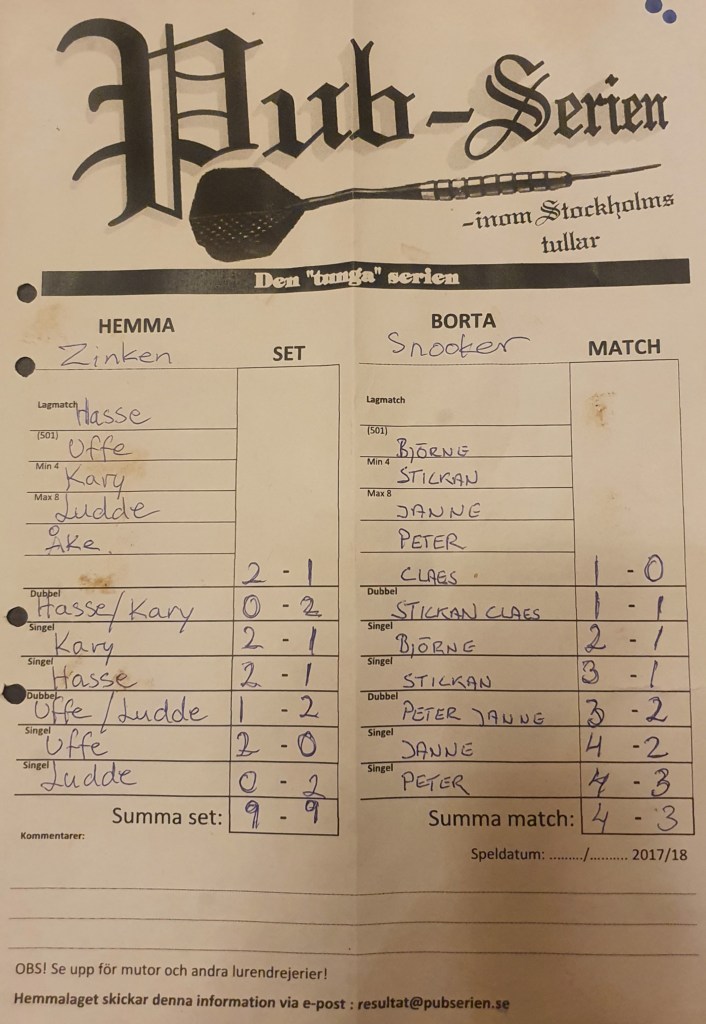 Pub-Serien
-inom Stockholms
tullar
Den "tunga" serien
HEMMA BORTA
Zinken SET Snooker MATCH
Lagmatch Hasse Lagmatch
(501) Uffe (501) BJÖRNE
Min 4 Kary Min 4 STICKAN
Max 8 Ludde Max 8 JANNE
Åke. PETER
2 - 1 CLAES 1 - 0
Dubbel Hasse/Kary 0 - 2 Dubbel STICKAN CLAES 1 - 1
Singel Kary 2 - 1 Singel BJÖRNE 2 - 1
Singel Hasse 2 - 1 Singel STICKAN 3 - 1
Dubbel Uffe/Ludde 1 - 2 Dubbel PETER JANNE 3 - 2
Singel Uffe 2 - 0 Singel JANNE 4 - 2
Singel Ludde 0 - 2 Singel PETER 4 - 3
Summa set: 9 - 9 Summa match: 4 - 3
Kommentarer:
Speldatum: ........./.......... 2017/18
OBS! Se upp för mutor och andra lurendrejerier!
Hemmalaget skickar denna information via e-post : resultat@pubserien.se